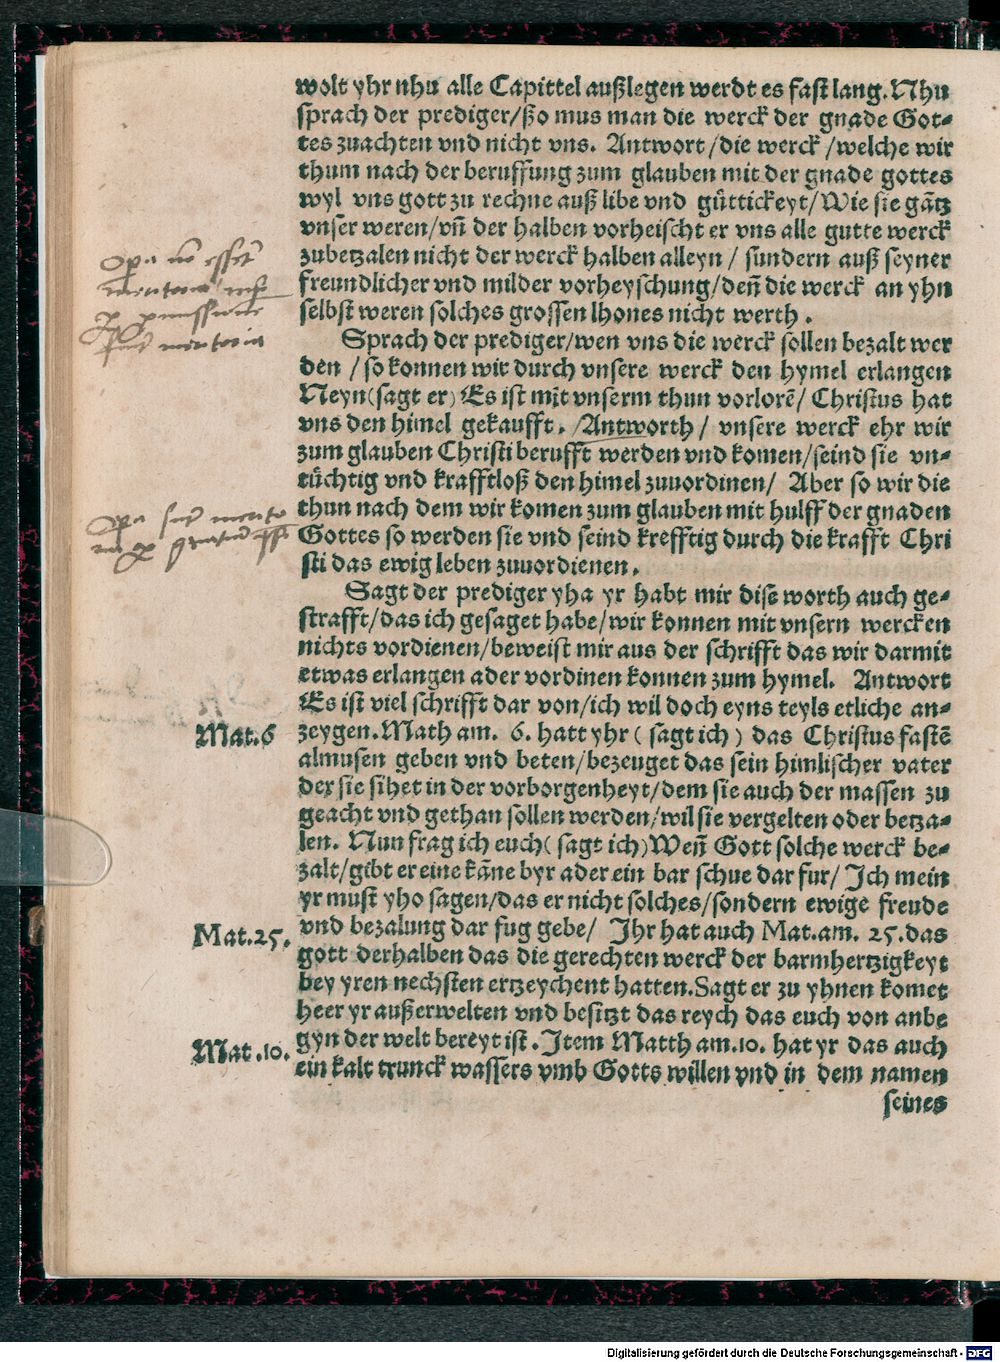 wolt yhr nhu alle Capittel außlegen werdt es fast lang. Nhu
sprach der prediger/ßo mus man die werck der gnade Got-
tes zuachten vnd nicht vns. Antwort/die werck/welche wir
thum nach der beruffung zum glauben mit der gnade gottes
wyl vns gott zu rechne auß libe vnd gůttickeyt/Wie sie gātz
vnser weren/vn̄ der halben vorheischt er vns alle gutte werck
zubetzalen nicht der werck halben alleyn / sundern auß seyner
freundlicher vnd milder vorheyschung/den̄ die werck an yhn
selbst weren solches grossen lhones nicht werth.
Opa nō essēt
meritoria
meritoria
Sprach der prediger/wen vns die werck sollen bezalt wer
den /so konnen wir durch vnsere werck den hymel erlangen
Neyn(sagt er) Es ist mit vnserm thun vorlorē/ Christus hat
vns den himel gekaufft. /Antworth/ vnsere werck ehr wir
zum glauben Christi berufft werden vnd komen/seind sie vn-
tůchtig vnd krafftloß den himel zuuordinen/ Aber so wir die
thun nach dem wir komen zum glauben mit hulff der gnaden
Gottes so werden sie vnd seind krefftig durch die krafft Chri
sti das ewig leben zuuordienen.
Opa
Sagt der prediger yha yr habt mir dise worth auch ge-
strafft/das ich gesaget habe/wir konnen mit vnsern wercken
nichts vordienen/beweist mir aus der schrifft das wir darmit
etwas erlangen ader vordinen konnen zum hymel. Antwort
Es ist viel schrifft dar von/ich wil doch eyns teyls etliche an-
Mat.6
zeygen. Math am. 6. hatt yhr ( sagt ich ) das Christus fastē
almusen geben vnd beten/bezeuget das sein himlischer vater
der sie sihet in der vorborgenheyt/dem sie auch der massen zu
geacht vnd gethan sollen werden/wil sie vergelten oder betza-
len. Nun frag ich euch( sagt ich)Wen̄ Gott solche werck be-
zalt/gibt er eine kāne byr ader ein bar schue dar fur/ Ich mein
yr must yho sagen/das er nicht solches/sondern ewige freude
Mat.25.
vnd bezalung dar fug gebe/ Ihr hat auch Mat.am. 25.das
gott derhalben das die gerechten werck der barmhertzigkeyt
bey yren nechsten ertzeychent hatten.Sagt er zu yhnen komet
heer yr außerwelten vnd besitzt das reych das euch von anbe
Mat.10.
gyn der welt bereyt ist. Item Matth am.10. hat yr das auch
ein kalt trunck wassers vmb Gotts willen vnd in dem namen
seines
Digitalisierung gefördert durch die Deutsche Forschungsgemeinschaft - DFG